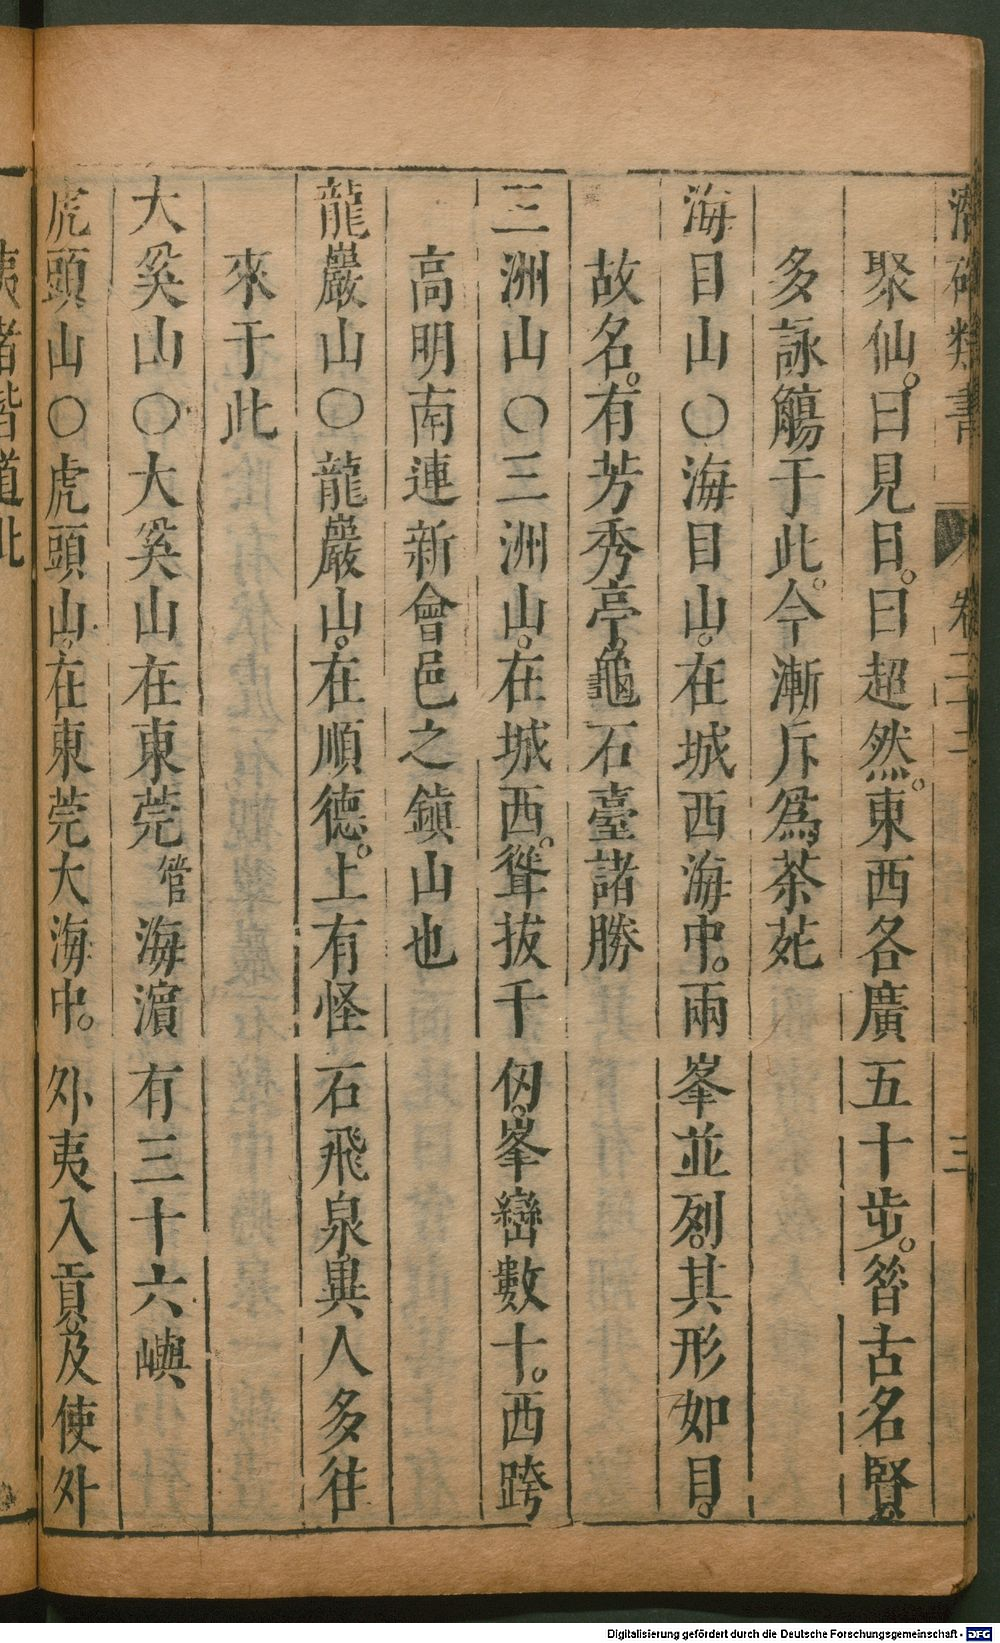 類書 卷二十二 三
聚仙。曰見日。曰超然。東西各廣五十步。昝古名賢
多詠觴于此。今漸斥爲茶苑
海目山〇海目山。在城西海中。兩峯並列。其形如目。
故名。有芳秀亭。龜石臺諸勝
三洲山〇三洲山。在城西。聳拔千仞。峯巒數十。西跨
高明南連新會邑之鎮山也
龍巖山〇龍巖山。在順德。上有怪石飛泉異人多往
來于此
大奚山〇大奚山在東莞管海濵有三十六嶼
虎頭山〇虎頭山。在東莞大海中。外夷入貢。及使外
夷者皆道此
Digitalisierung gefördert durch die Deutsche Forschungsgemeinschaft - DFG